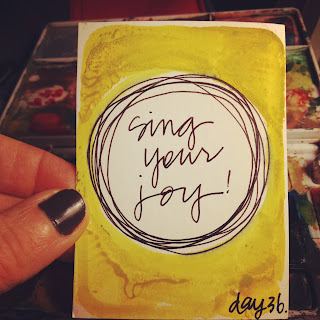 sing
your
joy!
day 36.